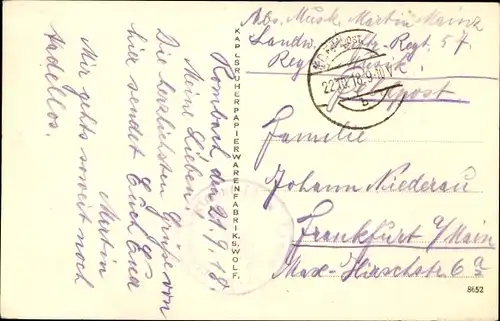 Kombach den 21/9.18.
Meine Lieben!
Die herzlichsten Grüße von
hier sendet Euch Euer
Martin
Mir gehts soweit noch
tadellos.
KARLSRUHER PAPIERWARENFABRIK S. WOLF.
Abs. Musk. Martin Mainz
Landw. Inftr. Regt. 57.
Feldpost
22.10.18.9-10V
b
Familie
Johann Niederau
Frankfurt a/Main
Max-Hirschstr. 6 a
8652